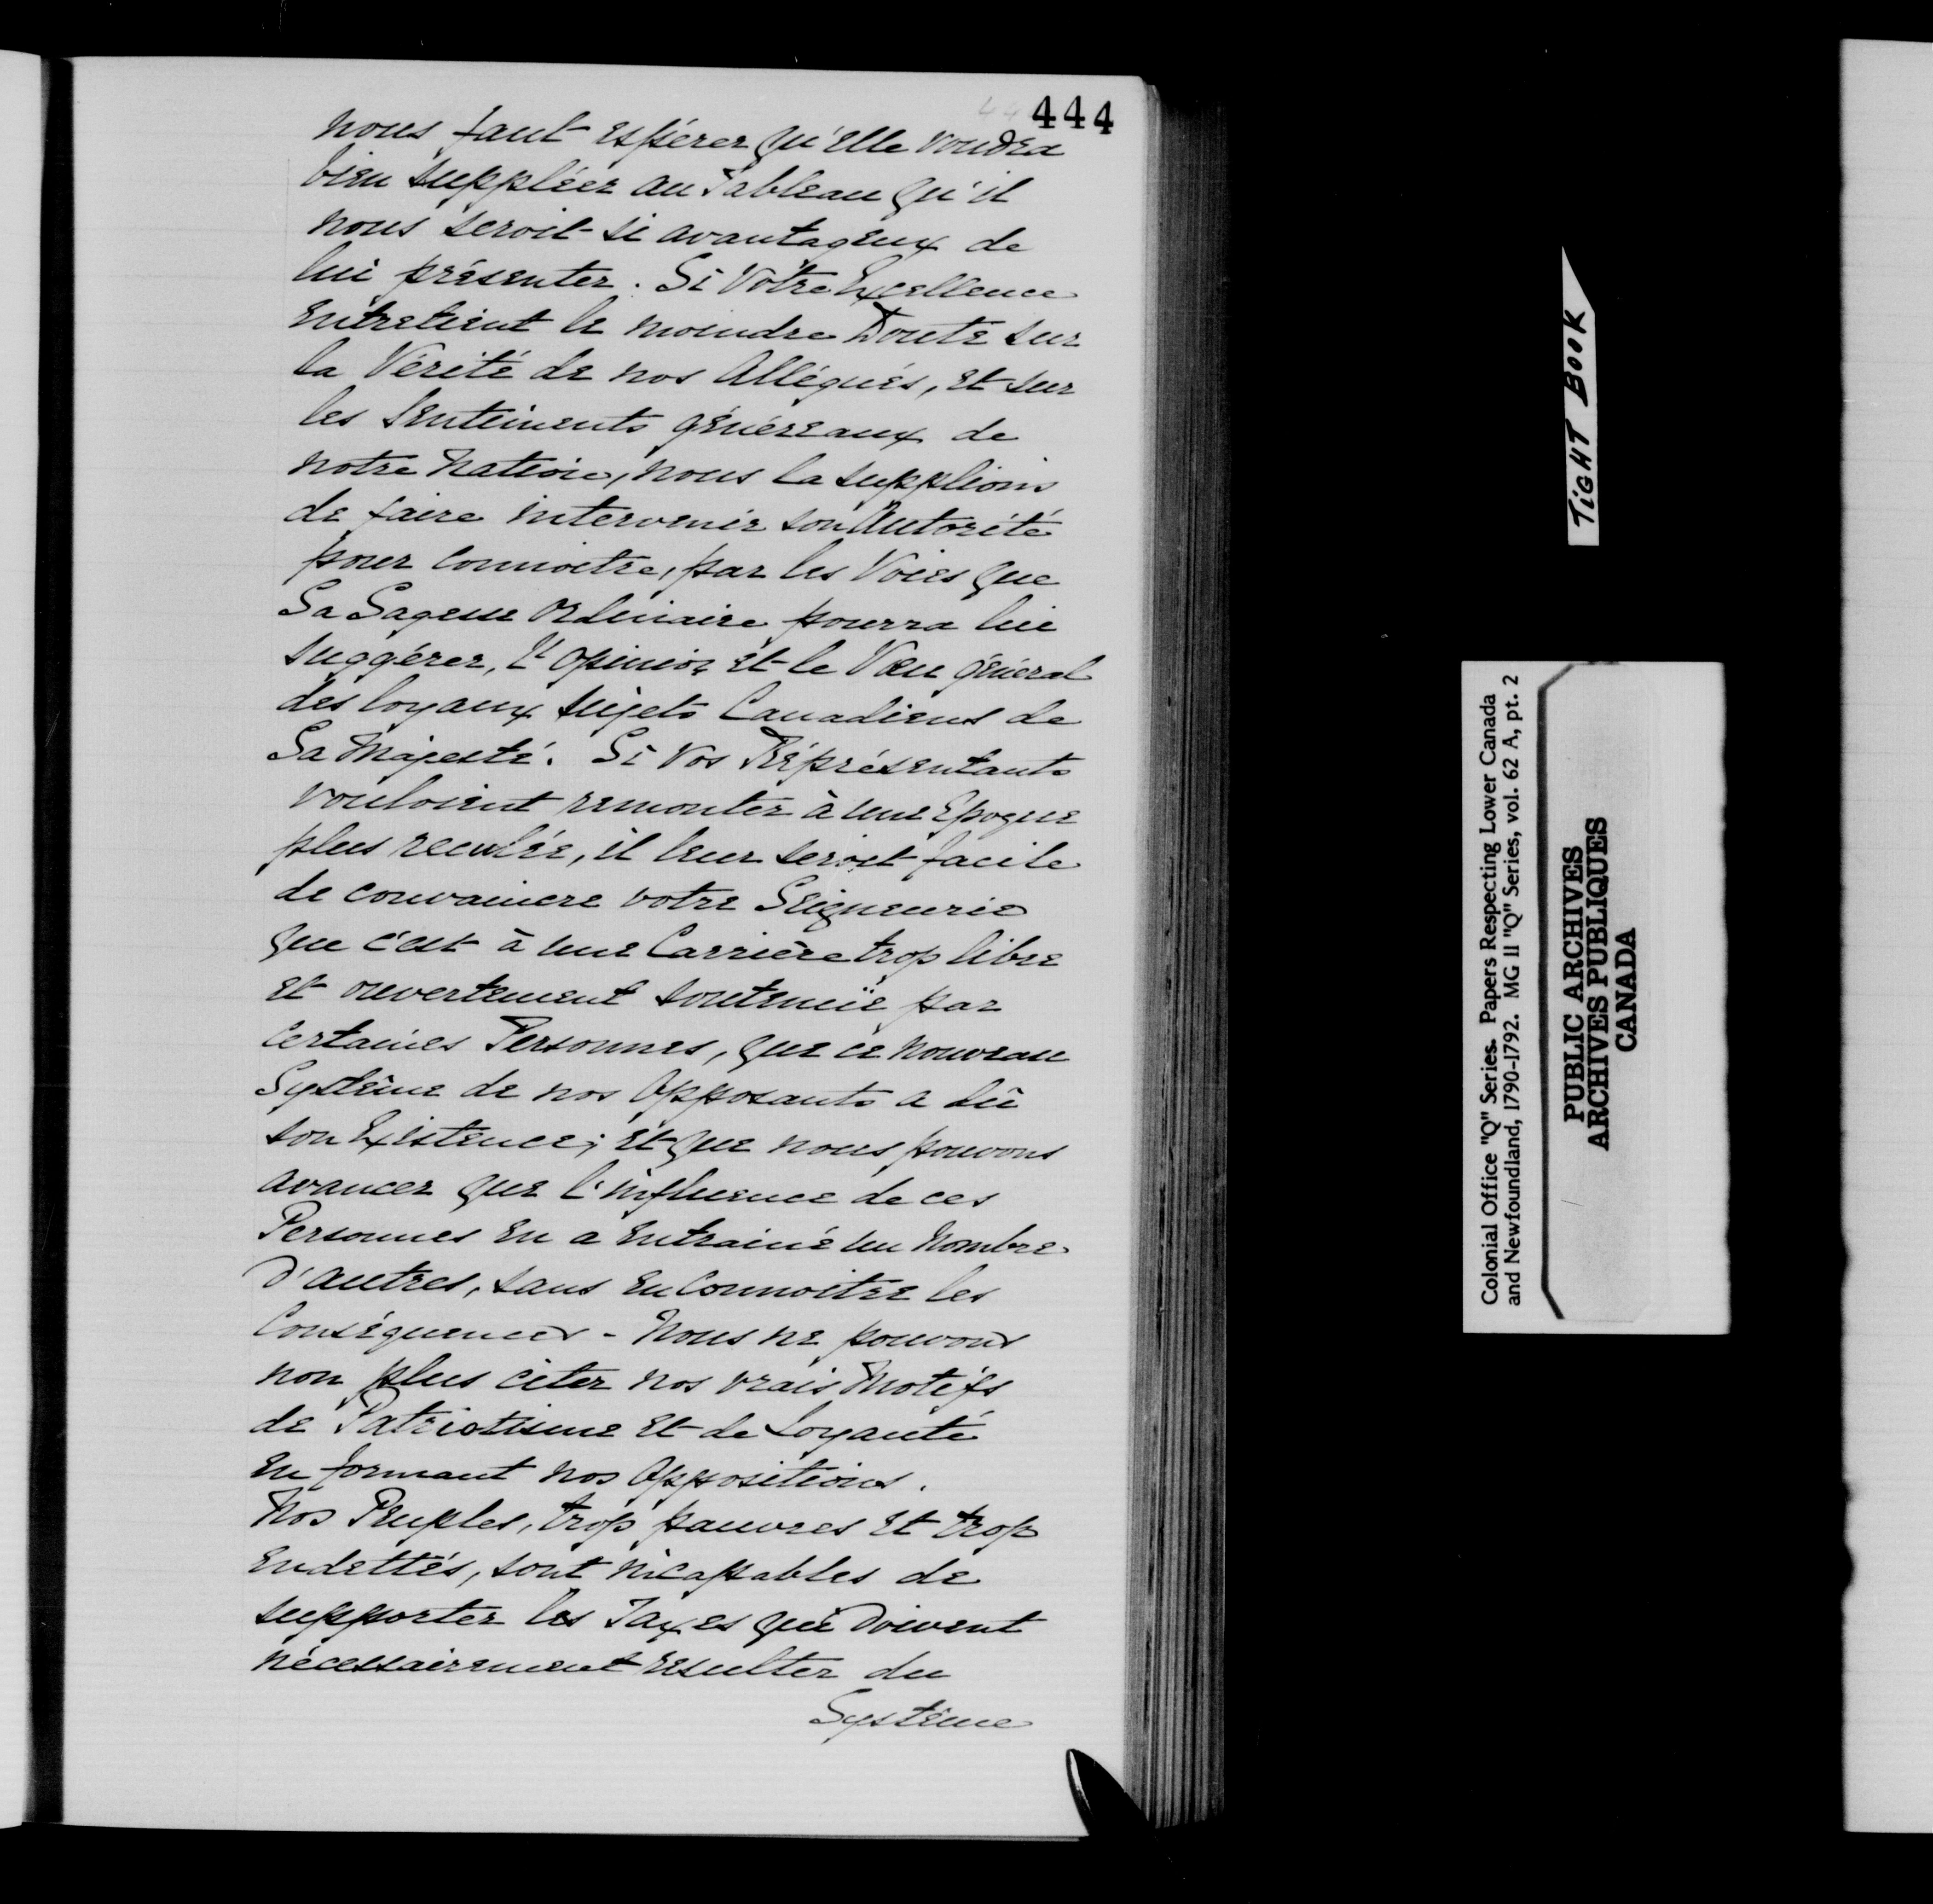 444
nous fait espérer qu'elle voudra
bien suppléer au Tableau qu'il
nous seroit si avantageux de
lui présenter. Si Votre Excellence
entretient le moindre Doute sur
la Vérité de nos Allégués, et sur
les sentiments généreaux de
notre Nation, nous la supplions
de faire intervenir son Autorité
pour connoitre, par les Voies que
Sa Sagesse ordinaire pourra lui
suggérer, l'opinion et le Vœu général
des loyaux sujets Canadiens de
Sa Majesté. Si Vos Réprésentants
vouloient remonter à une Epoque
plus reculée, il leur seroit facile
de convaincre votre Seigneurie
que c'est à une Carrière trop libre
et ouvertement soutenüe par
certaines Personnes, que ce nouveau
Système de nos Opposants a dû
son Existence; et que nous pouvons
avancer que l'influence de ces
Personnes en a entrainé un Nombre
d'autres, sans en Connoitre les
Conséquences - Nous ne pouvons
non plus citer nos vrais Motifs
de Patriotisme et de Loyauté
en formant nos Oppositions.
Nos Peuples, trop pauvres et trop
endettés, sont incapables de
supporter les Taxes qui doivent
nécessairement resulter du
Système
TIGHT BOOK
Colonial Office "Q" Series. Papers Respecting Lower Canada
and Newfoundland, 1790-1792. MG II "Q" Series, vol. 62 A, pt. 2
PUBLIC ARCHIVES
ARCHIVES PUBLIQUES
CANADA